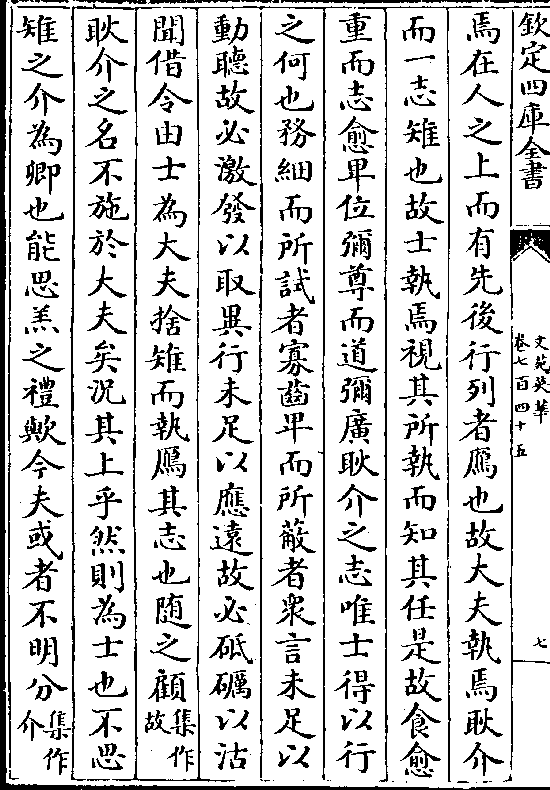 欽定四庫全書
文苑英華
卷七百四十五
七
焉在人之上而有先後行列者鴈也故大夫執焉耿介
而一志雉也故士執焉視其所執而知其任是故食愈
重而志愈卑位彌尊而道彌廣耿介之志唯士得以行
之何也務細而所試者寡齒卑而所蔽者衆言未足以
動聽故必激發以取異行未足以應遠故必砥礪以沽
聞借令由士為大夫捨雉而執鴈其志也随之顧集作故
耿介之名不施於大夫矣況其上乎然則為士也不思
雉之介為卿也能思羔之禮歟今夫或者不明分集作介